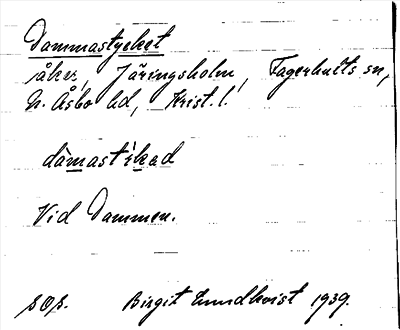 Dammastycket
åker, Järingsholm, Fagerhults sn,
N. Åsbo hd, Krist. l.
Vid Dammen.
Birgit Lundkvist 1939.